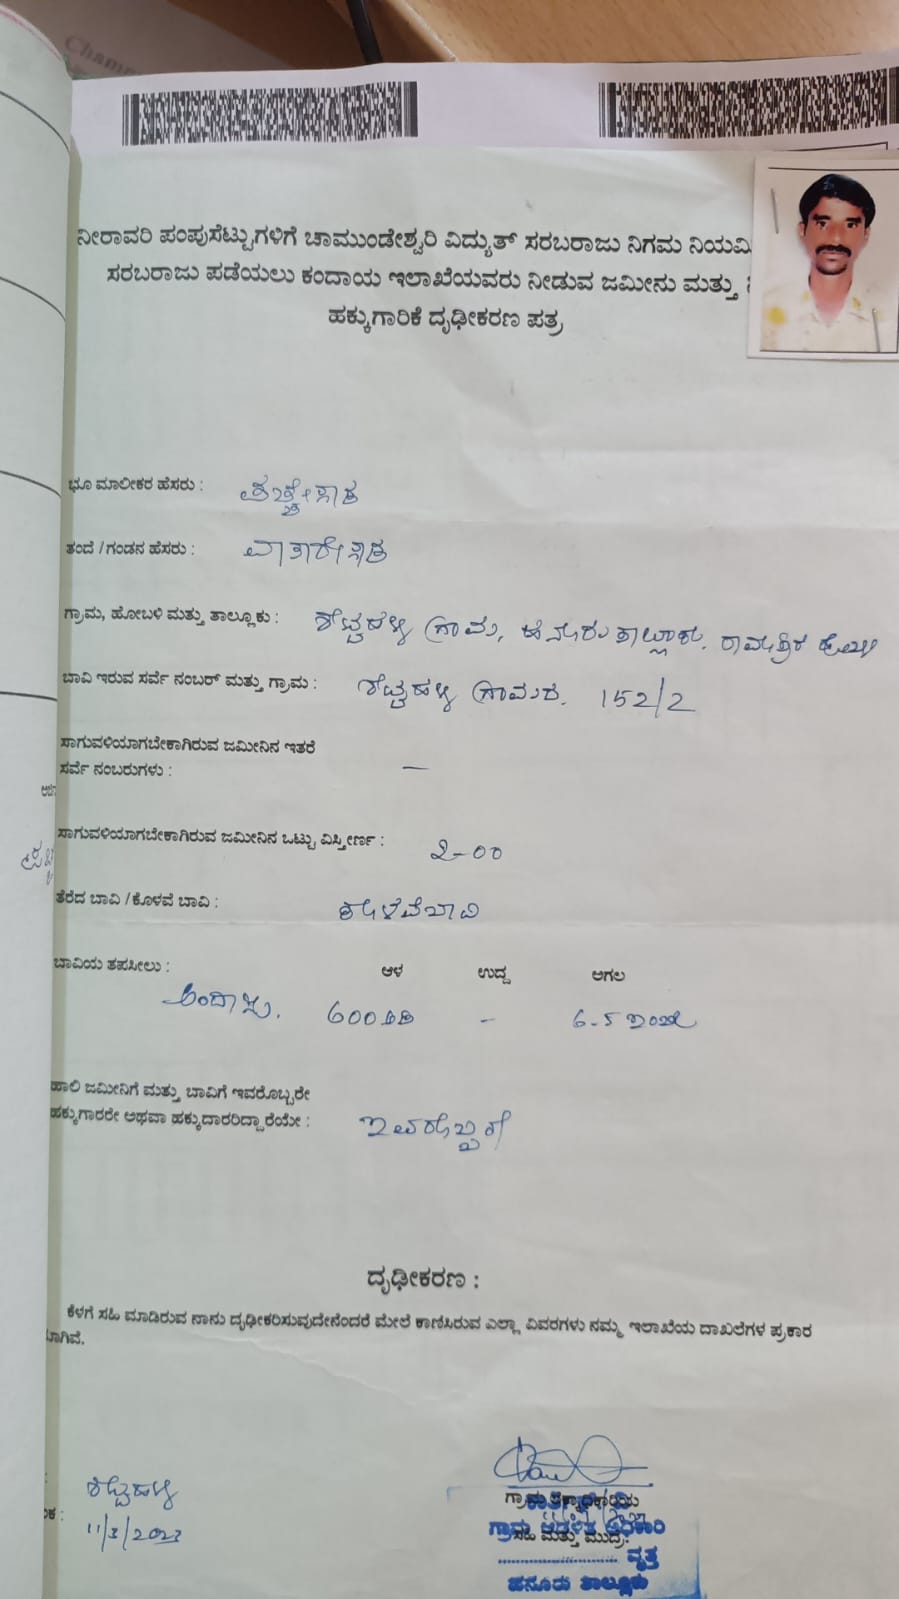 ನೀರಾವರಿ ಪಂಪುಸೆಟ್ಟುಗಳಿಗೆ ಚಾಮುಂಡೇಶ್ವರಿ ವಿದ್ಯುತ್ ಸರಬರಾಜು ನಿಗಮ
ಸರಬರಾಜು ಪಡೆಯಲು ಕಂದಾಯ ಇಲಾಖೆಯವರು ನೀಡುವ ಜಮೀನು ಮತ್ತು
ಹಕ್ಕುಗಾರಿಕೆ ದೃಢೀಕರಣ ಪತ್ರ
ಭೂ ಮಾಲೀಕರ ಹೆಸರು :
ತಂದೆ / ಗಂಡನ ಹೆಸರು :
ಗ್ರಾಮ, ಹೋಬಳಿ ಮತ್ತು ತಾಲ್ಲೂಕು : ಶೆಟ್ಟಹಳ್ಳಿ ಗ್ರಾಮ, ಹನೂರು ತಾಲ್ಲೂಕು.
ಬಾವಿ ಇರುವ ಸರ್ವೆ ನಂಬರ್ ಮತ್ತು ಗ್ರಾಮ : ಶೆಟ್ಟಹಳ್ಳಿ 152/2
ಸಾಗುವಳಿಯಾಗಬೇಕಾಗಿರುವ ಜಮೀನಿನ ಇತರೆ
ಸರ್ವೆ ನಂಬರುಗಳು : —
ಸಾಗುವಳಿಯಾಗಬೇಕಾಗಿರುವ ಜಮೀನಿನ ಒಟ್ಟು ವಿಸ್ತೀರ್ಣ : 2-00
ತೆರೆದ ಬಾವಿ / ಕೊಳವೆ ಬಾವಿ : ಕೊಳವೆಬಾವಿ
ಬಾವಿಯ ತಪಸೀಲು : ಆಳ ಉದ್ದ ಅಗಲ
ಅಂದಾಜು. 600 ಅಡಿ - 6.5 ಇಂಚು
ಹಾಲಿ ಜಮೀನಿಗೆ ಮತ್ತು ಬಾವಿಗೆ ಇವರೊಬ್ಬರೇ
ಹಕ್ಕುಗಾರರೇ ಅಥವಾ ಹಕ್ಕುದಾರರಿದ್ದಾರೆಯೇ : ಇವರೊಬ್ಬರೆ
ದೃಢೀಕರಣ :
ಕೆಳಗೆ ಸಹಿ ಮಾಡಿರುವ ನಾನು ದೃಢೀಕರಿಸುವುದೇನೆಂದರೆ ಮೇಲೆ ಕಾಣಿಸಿರುವ ಎಲ್ಲಾ ವಿವರಗಳು ನಮ್ಮ ಇಲಾಖೆಯ ದಾಖಲೆಗಳ ಪ್ರಕಾರ
ಶೆಟ್ಟಹಳ್ಳಿ
11/3/2023
ಗ್ರಾಮ ಆಡಳಿತ ಅಧಿಕಾರಿ
ಸಹಿ ಮತ್ತು ಮುದ್ರೆ
ವೃತ್ತ
ಹನೂರು ತಾಲ್ಲೂಕು